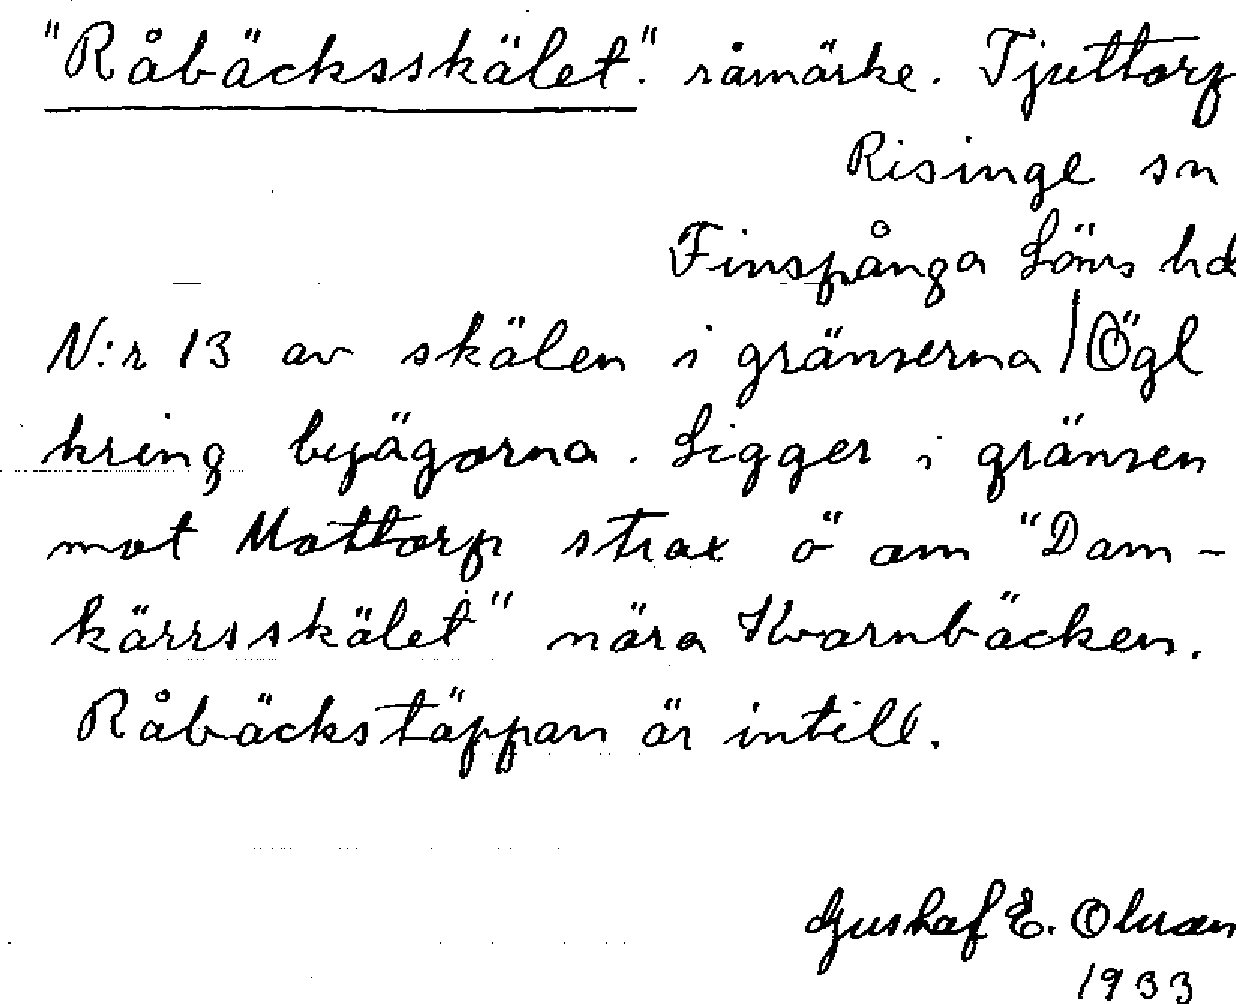 "Råbäcksskälet." råmärke. Tjuttorp
Risinge sn
Finspånga Läns hd
N:r 13 av skälen i gränserna / Ögl
kring byägorna. Ligger i gränsen
mot Mottorp strax ö om "Dam-
kärrsskälet" nära Kvarnbäcken.
Råbäckstäppan är intill.
Gustaf E. Olsson
1933